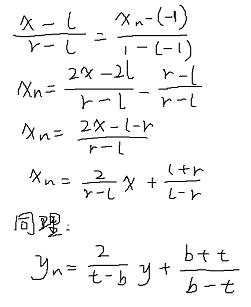 (x - l)/(r - l) = (x_n - (-1))/(1 - (-1))
x_n = (2x - 2l)/(r - l) - (r - l)/(r - l)
x_n = (2x - l - r)/(r - l)
x_n = 2/(r - l) x + (l + r)/(l - r)
同理:
y_n = 2/(t - b) y + (b + t)/(b - t)